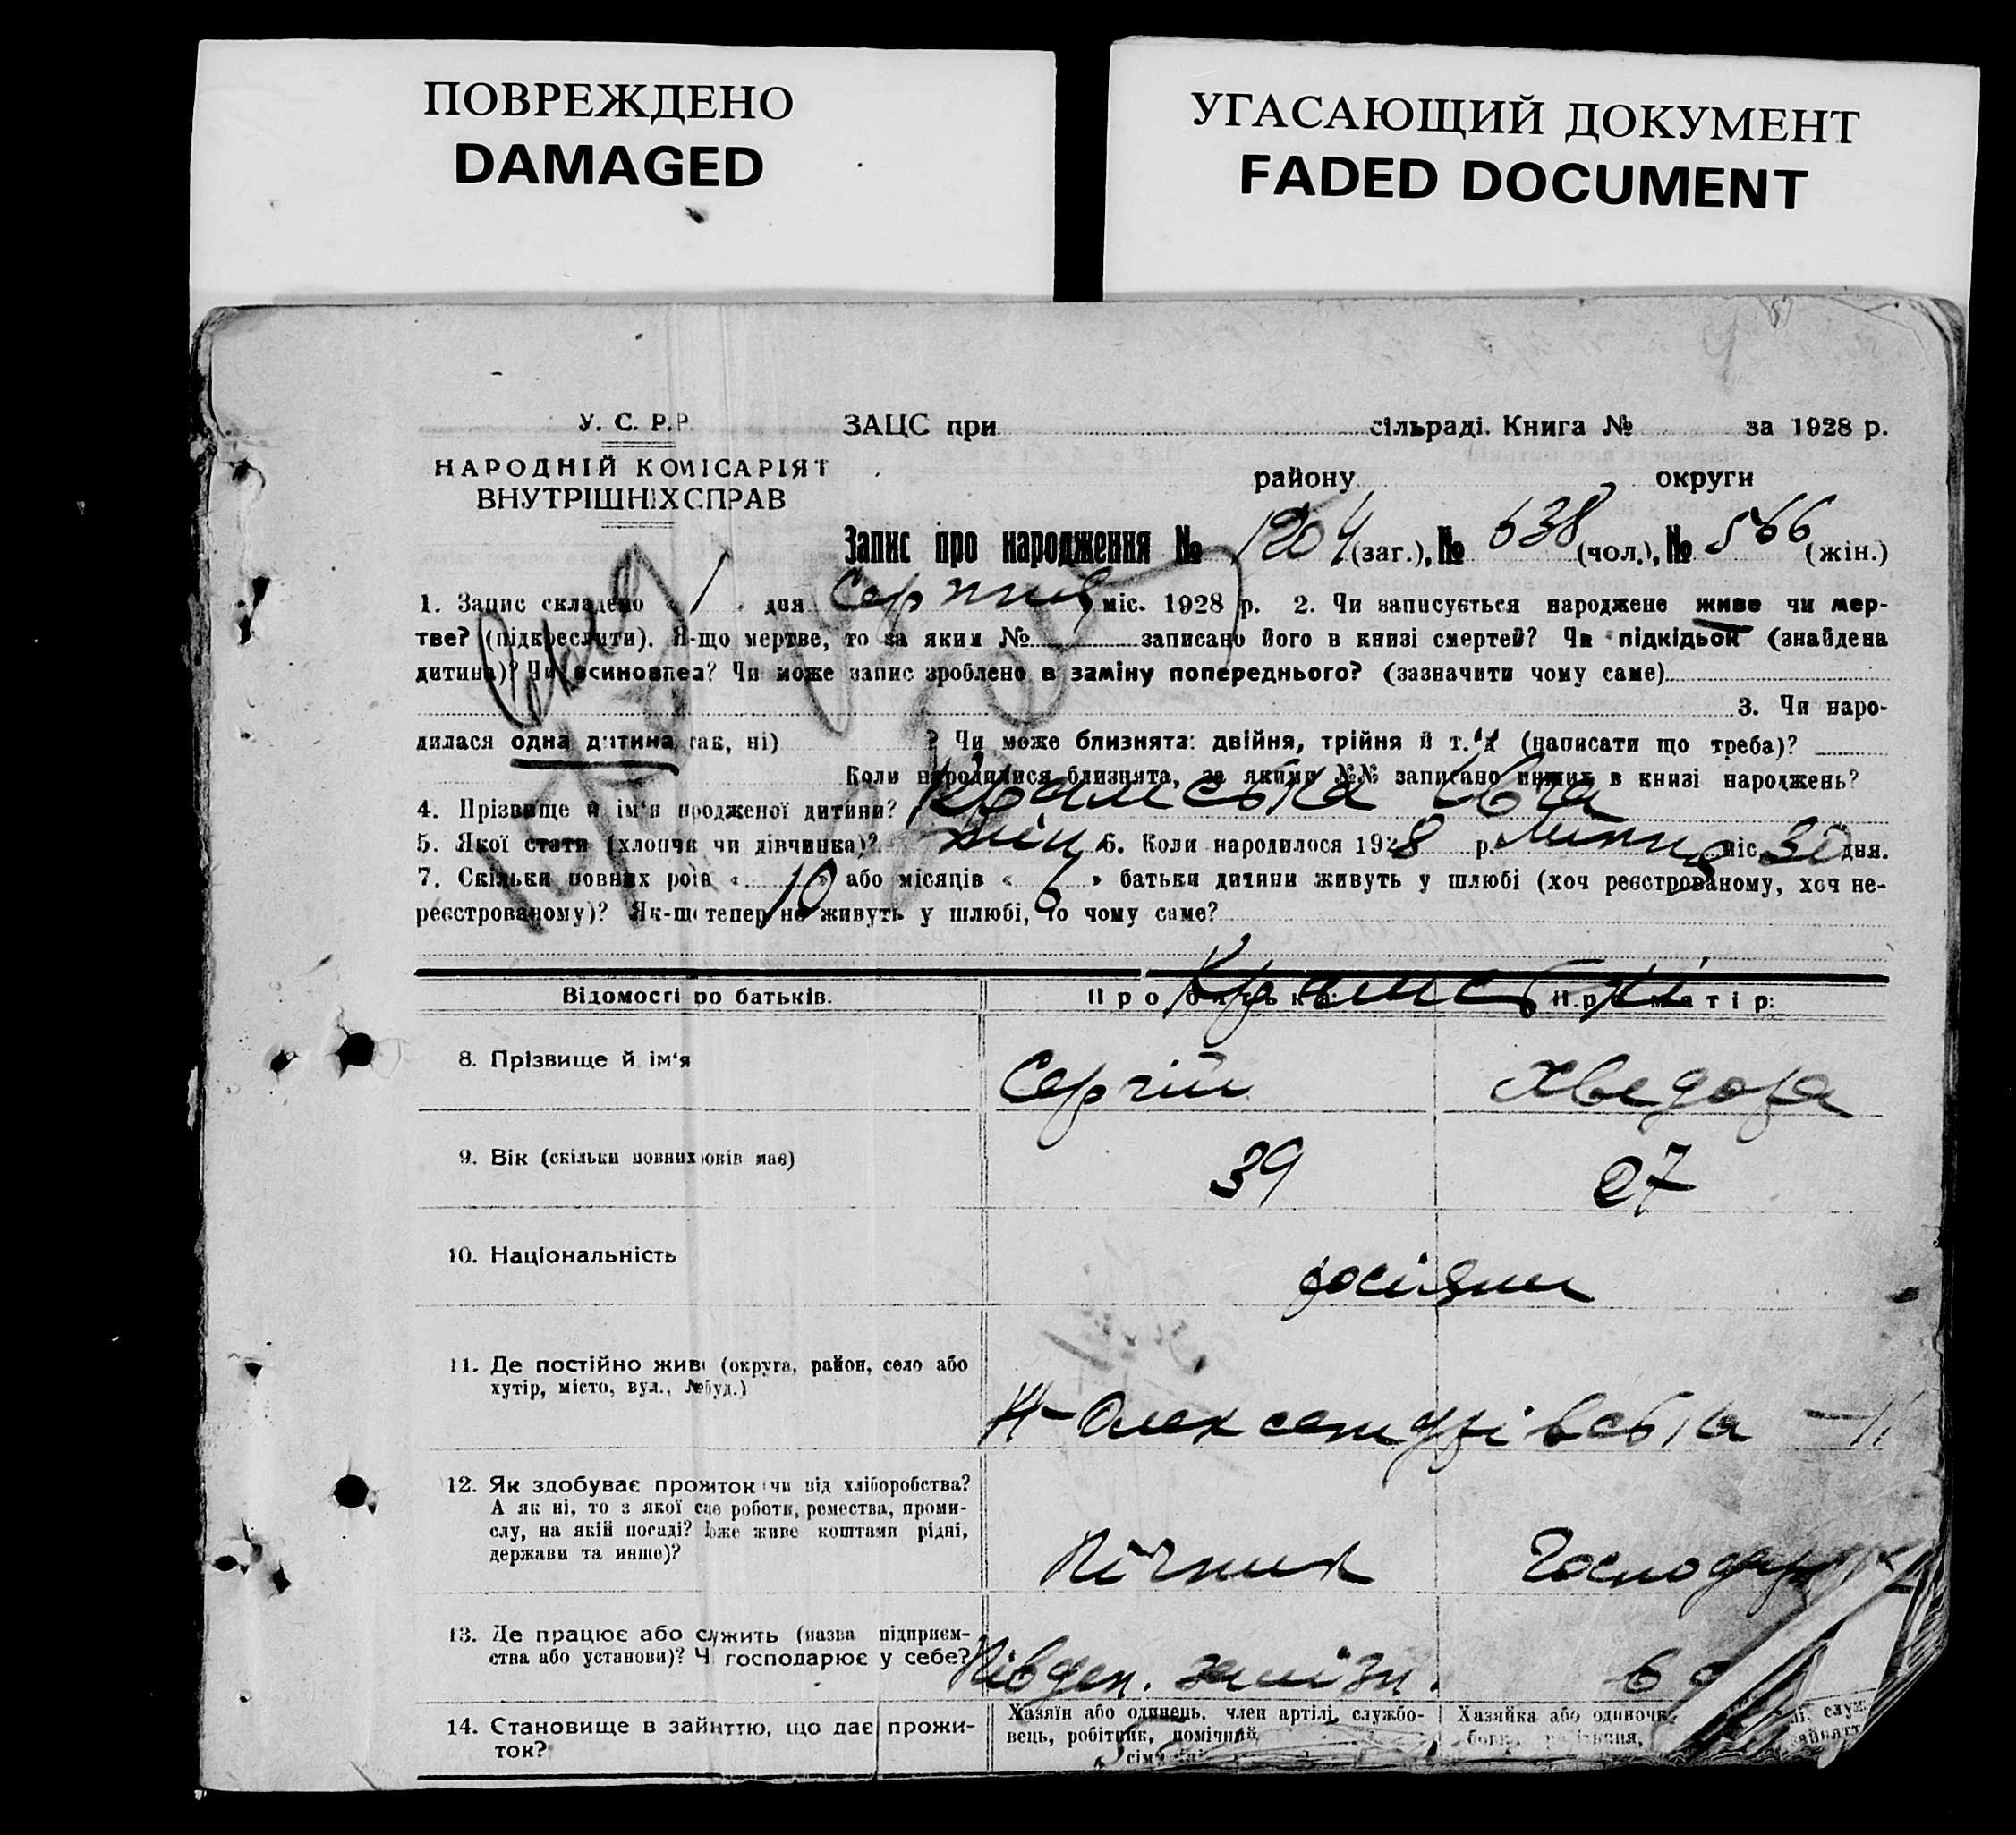 ПОВРЕЖДЕНО
DAMAGED
УГАСАЮЩИЙ ДОКУМЕНТ
FADED DOCUMENT
У. С. Р.Р.
НАРОДНІЙ КОМІСАРІЯТ
ВНУТРІШНІХ СПРАВ
ЗАЦС при сільраді. Книга № за 1928 р.
району округи
Запис про народження № 1204 (заг.), № 638 (чол.), № 566 (жін.)
1. Запис складено « 1 » дня Серпня міс. 1928 р. 2. Чи записується народжене живе чи мер-
тве? (підкреслити). Я-що мертве, то за яким № записано його в книзі смертей? Чи підкідьок (знайдена
дитина)? Чи всиновлена? Чи може запис зроблено в заміну попереднього? (зазначити чому саме)
3. Чи наро-
дилася одна дитина так, ні) ? Чи може близнята: двійня, трійня й т. д (написати що треба)?
Коли народилися близнята, за якими №№ записано инших в книзі народжень?
4. Прізвище й ім'я народженої дитини?
5. Якої стати (хлопчик чи дівчинка)? жін 6. Коли народилося 1928 р. Липня міс. 30 дня.
7. Скільки повних років « 10 » або місяців « 6 » батьки дитини живуть у шлюбі (хоч реєстрованому, хоч не-
реєстрованому)? Як-що тепер не живуть у шлюбі, то чому саме?
Відомості про батьків. Про батька: Про матір:
8. Прізвище й ім'я Сергій Хведора
9. Вік (скільки повних років має) 39 27
10. Національність росіяни
11. Де постійно живе (округа, район, село або
хутір, місто, вул., № буд.)
Н-Олександрівська
12. Як здобуває прожиток (чи від хліборобства?
А як ні, то з якої саме роботи, ремества, проми-
слу, на якій посаді? Може живе коштами рідні,
держави та инше)?
Пічник
13. Де працює або служить (назва підприєм-
ства або установи)? Чи господарює у себе? Півден. залізн.
14. Становище в зайняттю, що дає прожи-
ток?
Хазяїн або одинець, член артілі, службо-
вець, робітник, помічний
Хазяйка або одиночка,